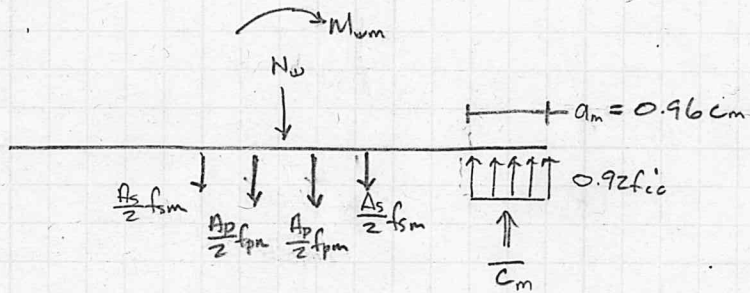 Mwm
Nw
am = 0.96 cm
As/2 fsm
Ap/2 fpm
Ap/2 fpm
As/2 fsm
0.92f'cc
Cm